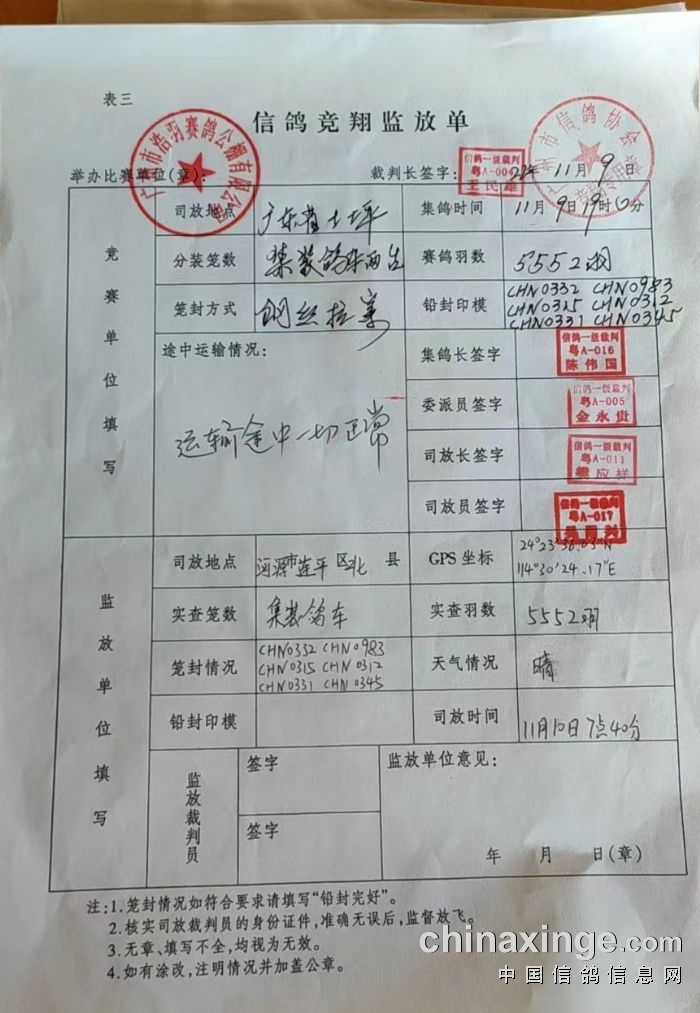 表三
信鸽竞翔监放单
举办比赛单位(章): 裁判长签字: 22年 11月 9日
广州市浩羽赛鸽公棚有限公司
州市信鸽协会
信鸽一级裁判
粤A-004
王民雄
竞赛单位填写
司放地点 广东省 坪 集鸽时间 11月9日19时0分
分装笼数 集装鸽车两台 赛鸽羽数 5552羽
笼封方式 钢丝拉案 铅封印模 CHN0332 CHN0983
CHN0315 CHN0312
CHN0331 CHN0345
途中运输情况:
运输途中一切正常
集鸽长签字
信鸽一级裁判
粤A-016
陈伟国
委派员签字
信鸽一级裁判
粤A-005
金永贵
司放长签字
信鸽一级裁判
粤A-011
应祥
司放员签字
信鸽一级裁判
粤A-017
监放单位填写
司放地点 河源市连平区北 县 GPS 坐标 24°23'36.03"N
114°30'24.17"E
实查笼数 集装鸽车 实查羽数 5552羽
笼封情况 CHN0332 CHN0983
CHN0315 CHN0312
CHN0331 CHN0345
天气情况 晴
铅封印模 司放时间 11月10日7点40分
监放裁判员
签字
签字
监放单位意见:
年 月 日(章)
注:1.笼封情况如符合要求请填写“铅封完好”。
2.核实司放裁判员的身份证件,准确无误后,监督放飞。
3.无章、填写不全,均视为无效。
4.如有涂改,注明情况并加盖公章。
chinaxinge.com
中国信鸽信息网